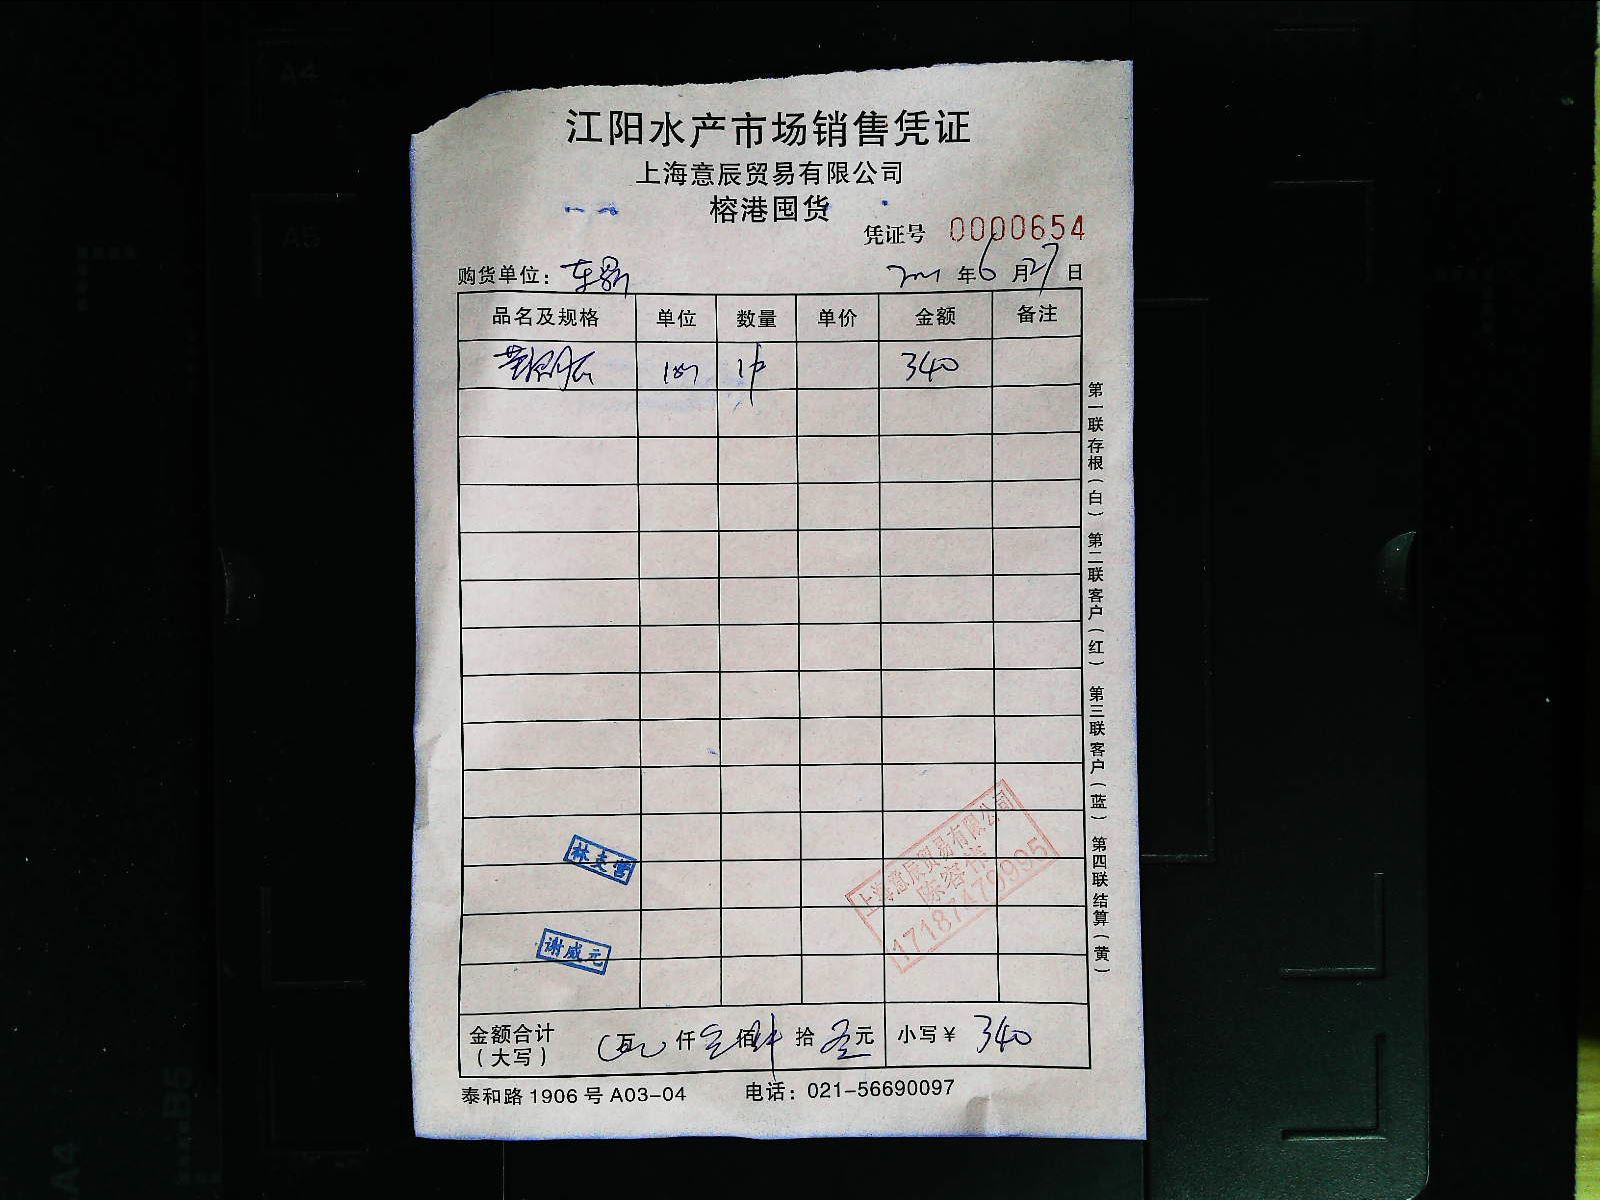 江阳水产市场销售凭证
上海意辰贸易有限公司
榕港囤货
凭证号 0000654
购货单位：
年6月27日
品名及规格 单位 数量 单价 金额 备注
340
第一联存根（白） 第二联客户（红） 第三联客户（蓝） 第四联结算（黄）
上海意辰贸易有限公司
17187479995
谢威元
金额合计
（大写）
万 仟 佰 拾 元 小写￥ 340
泰和路1906号A03-04 电话：021-56690097